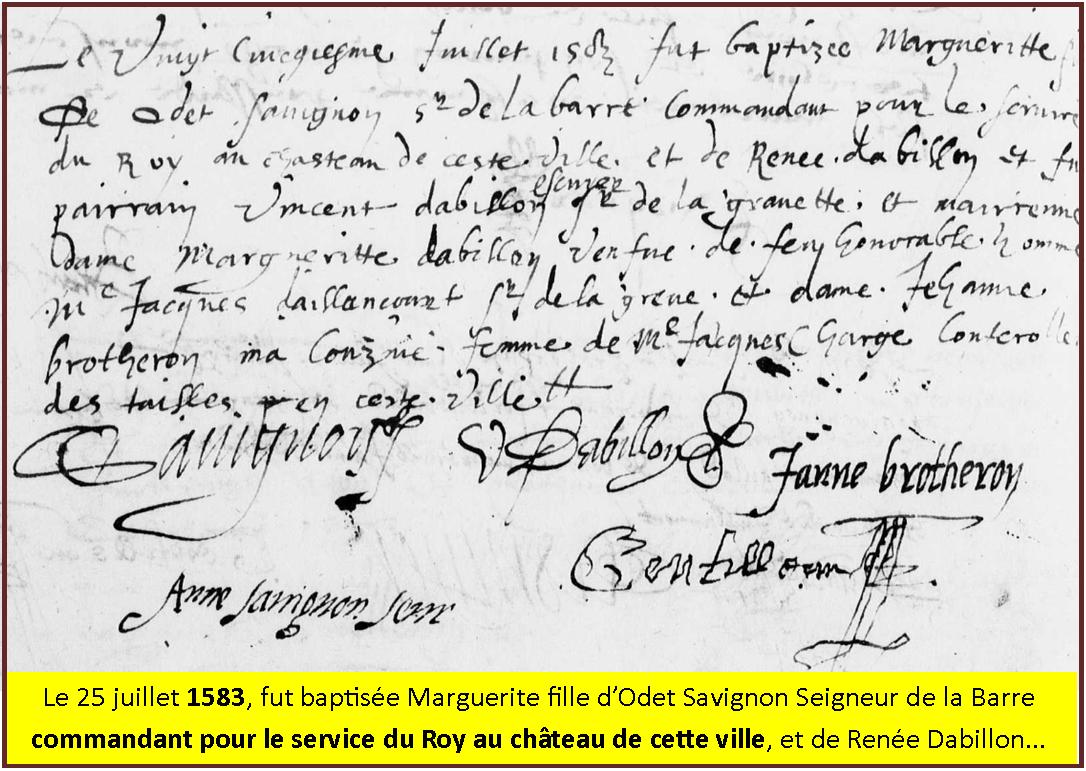 Le Vingt Cincqiesme Juillet 1583 fut baptizee Margueritte
De Odet Savignon Sr de la barre Commandant pour le service
du Roy au chasteau de ceste ville. et de Renee dabillon et fu
pairrain Vincent dabillon escuyer Sr de la gravette. et mairenne
dame Margueritte dabillon venfue de feu honorable homme
Me Jacques daillancourt Sr de la greve. et dame Jehanne
brotheron ma Conzine femme de Me Jacques Charge Conterolle
des tailles en ceste ville
Savignon Dabillon Janne brotheron
Anne Savignon
Le 25 juillet 1583, fut baptisée Marguerite fille d'Odet Savignon Seigneur de la Barre
commandant pour le service du Roy au château de cette ville, et de Renée Dabillon...